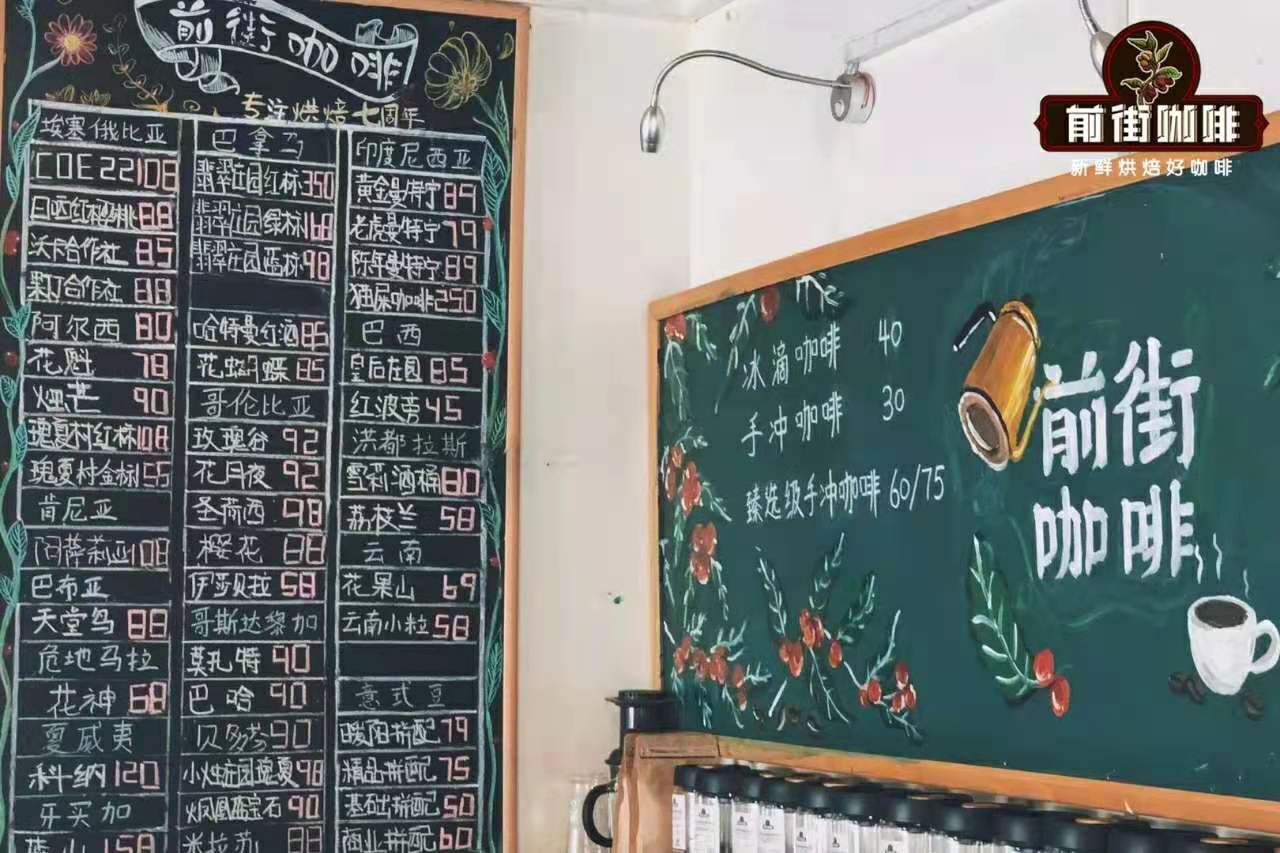 前街咖啡
专注烘焙七周年
埃塞俄比亚
COE22 108
日晒红樱桃 88
沃卡合作社 85
果丁合作社 88
阿尔西 80
花魁 78
烛芒 90
瑰夏村红标 108
瑰夏村金标
肯尼亚
阿萨莉亚 108
巴布亚
天堂鸟 88
危地马拉
花神 68
夏威夷
科纳 120
牙买加
蓝山 158
巴拿马
翡翠庄园红标 350
翡翠庄园绿标 168
翡翠庄园蓝标 98
哈特曼红酒 85
花蝴蝶 85
哥伦比亚
玫瑰谷 92
花月夜 92
圣荷西 98
樱花 88
伊莎贝拉 58
哥斯达黎加
莫扎特 90
巴哈 90
贝多芬 90
小烛庄园瑰夏 98
凤凰蓝宝石 90
米拉苏 88
印度尼西亚
黄金曼特宁 89
老虎曼特宁 79
陈年曼特宁 89
猫屎咖啡 250
巴西
皇后庄园 85
红波旁 45
洪都拉斯
雪莉酒桶 80
荔枝兰 58
云南
花果山 69
云南小粒 58
意式豆
暖阳拼配 79
精品拼配 75
基础拼配 50
商业拼配 60
冰滴咖啡 40
手冲咖啡 30
臻选级手冲咖啡 60/75
前街
咖啡
前街咖啡
新鲜烘焙好咖啡